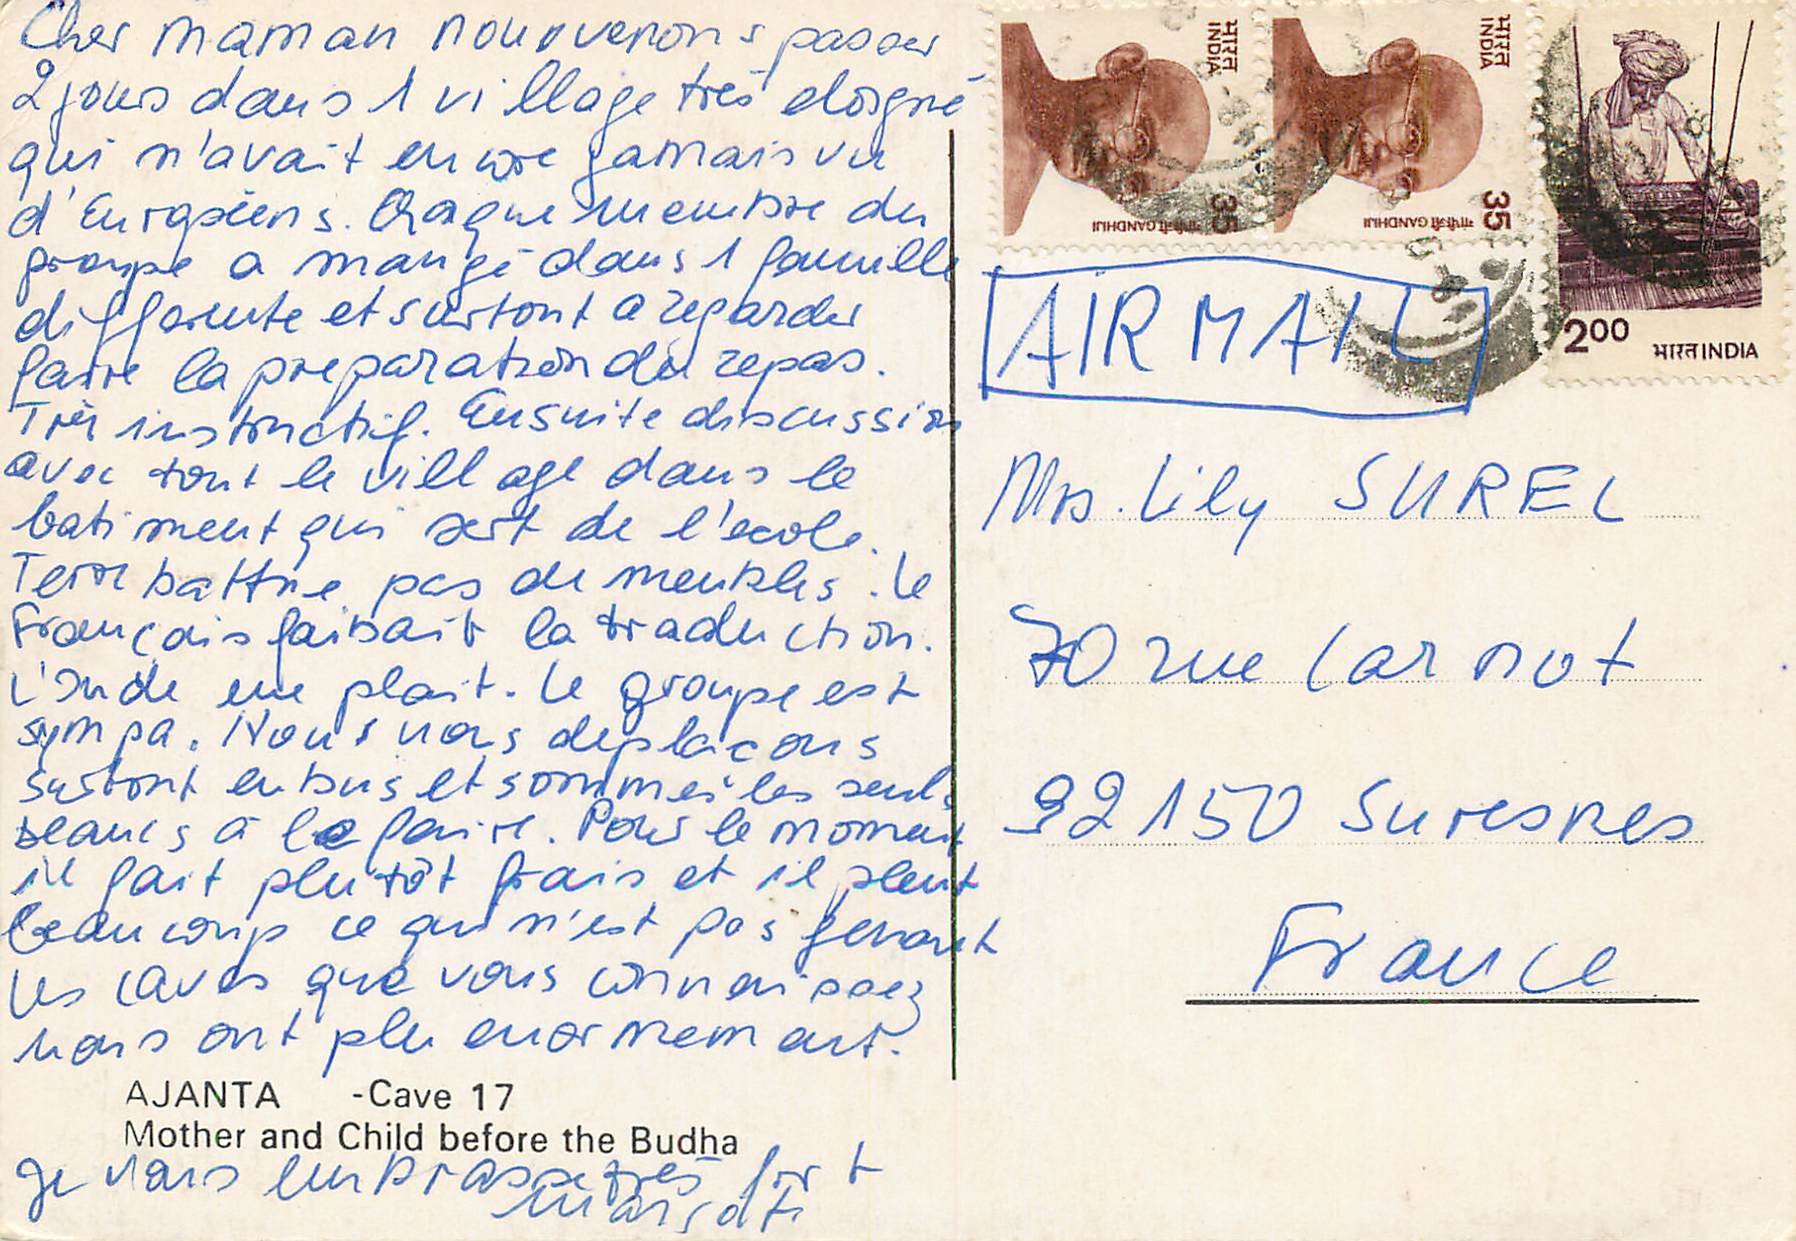 Cher maman nous venons passer
2 jours dans 1 village très eloigné
qui n'avait encore jamais vu
d'Européens. Chaque membre du
groupe a mangé dans 1 famille
differente et surtout a regarder
faire la preparation du repas.
Très instructif. Ensuite discussion
avec tout le village dans le
batiment qui sert de l'ecole.
Terre battue pas de meubles. Le
Français faisait la traduction.
L'Inde me plait. Le groupe est
sympa. Nous nous deplaçons
surtout en bus et sommes les seuls
blancs à le faire. Pour le moment
il fait plutôt frais et il pleut
beaucoup ce qui n'est pas genant
Les caves que vous connaissez
nous ont plu enormement.
AJANTA -Cave 17
Mother and Child before the Budha
Je vous embrasse très fort
भारत INDIA
35
गांधीजी GANDHIJI
भारत INDIA
35
गांधीजी GANDHIJI
200
भारत INDIA
AIR MAIL
Mrs. Lily SUREL
70 rue Carnot
92150 Suresnes
France